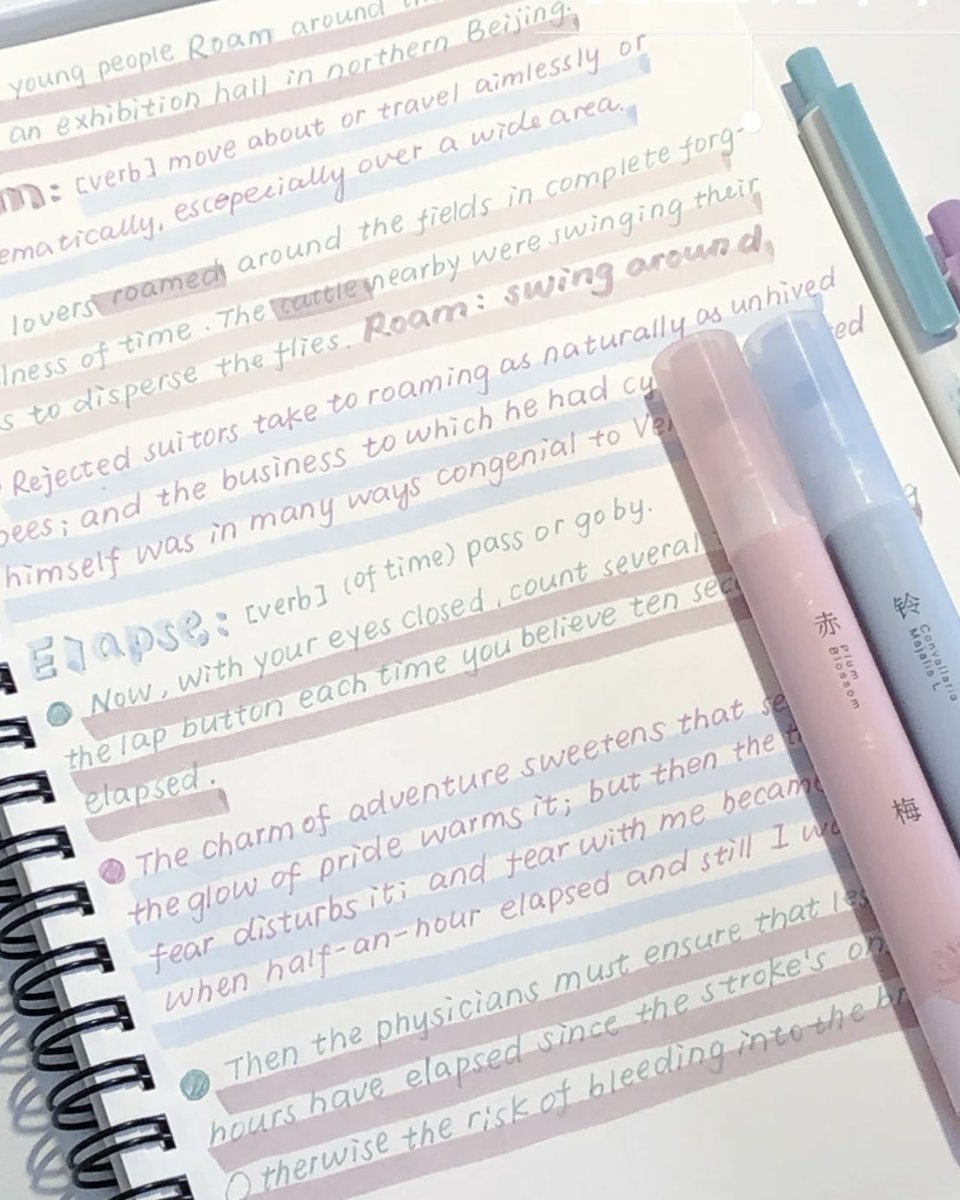 young people Roam around
an exhibition hall in northern Beijing.
m: [verb] move about or travel aimlessly or
ematically, escepecially over a wide area.
lovers roamed around the fields in complete forg-
lness of time. The cattle nearby were swinging their
s to disperse the flies. Roam: swing around
Rejected suitors take to roaming as naturally as unhived
bees; and the business to which he had cu ted
himself was in many ways congenial to Ver
Elapse: [verb] (of time) pass or go by.
Now, with your eyes closed, count several
the lap button each time you believe ten sec
elapsed.
The charm of adventure sweetens that se
the glow of pride warms it; but then the t
fear disturbs it; and fear with me became
when half-an-hour elapsed and still I w
Then the physicians must ensure that les
hours have elapsed since the stroke's on
Otherwise the risk of bleeding into the br
赤
Plum
Blossom
梅
铃
Convallaria
Majalis L